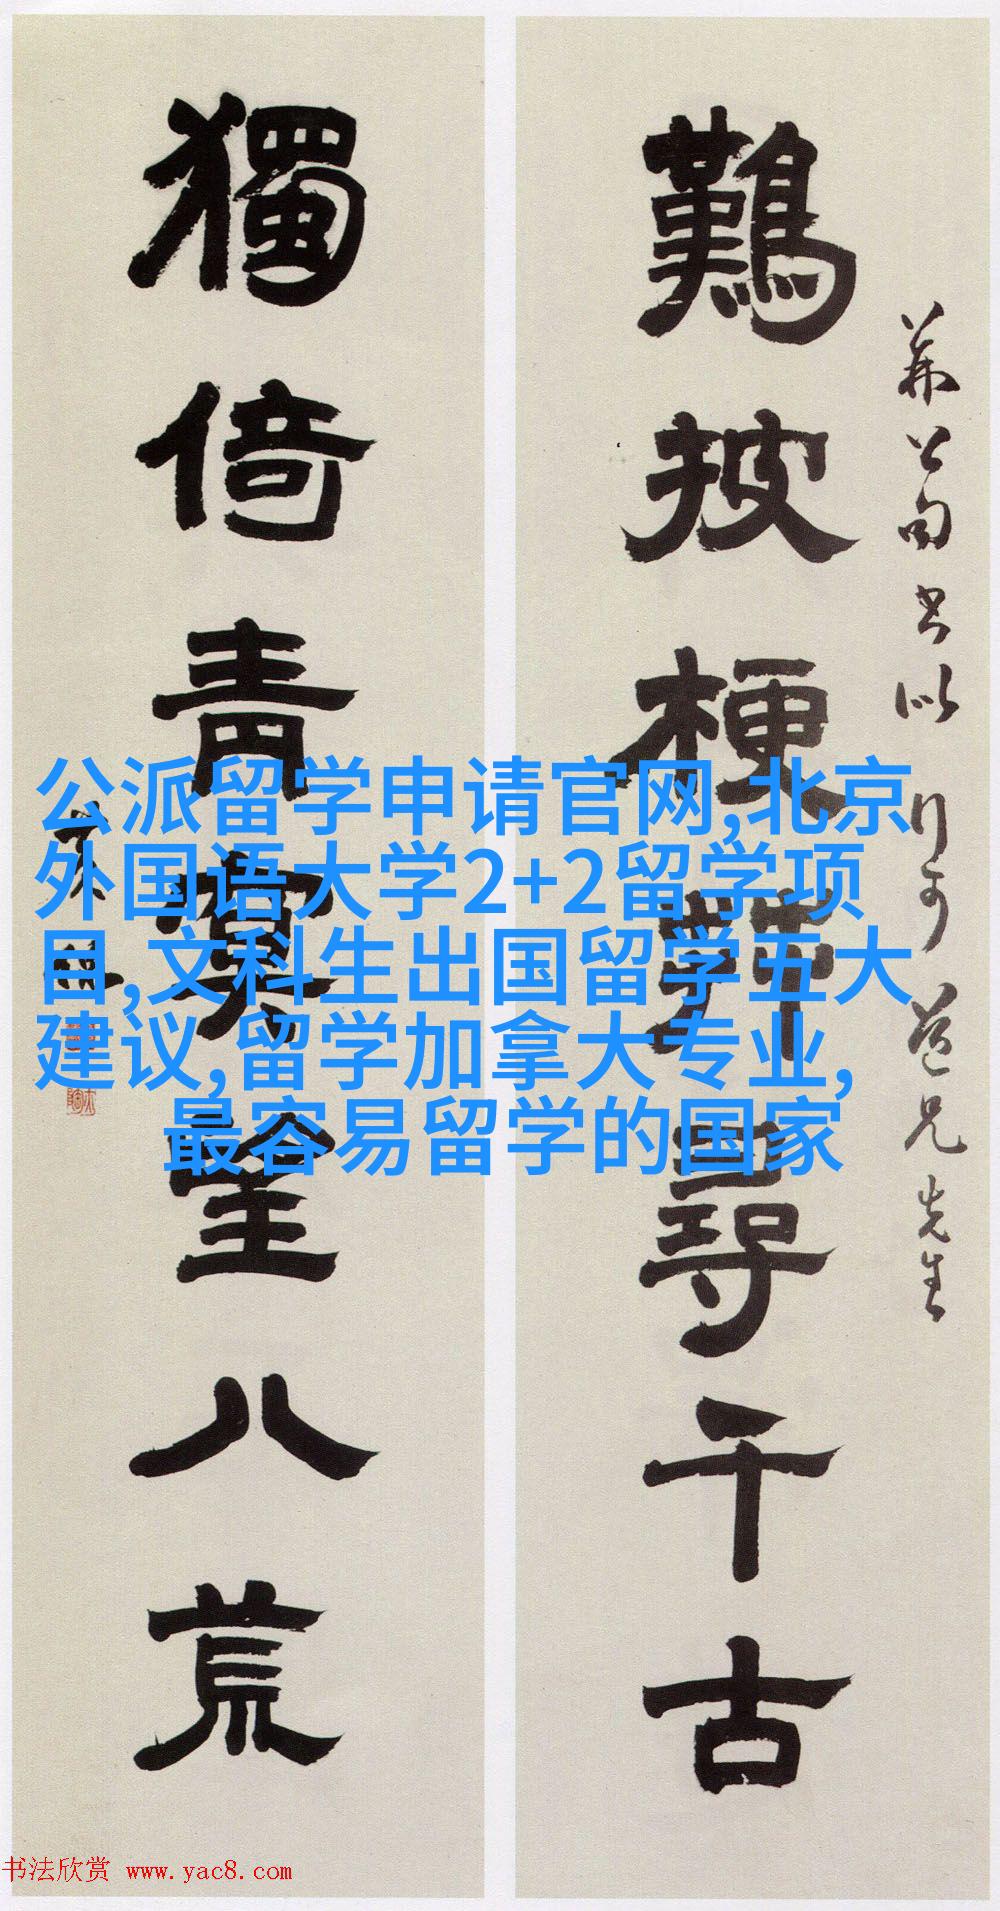 公句書以
道兄先生
難披梗尋千古
獨倚青望八荒
公派留学申请官网,北京
外国语大学2+2留学项
目,文科生出国留学五大
建议,留学加拿大专业,
最容易留学的国家
书法欣赏 www.yac8.com